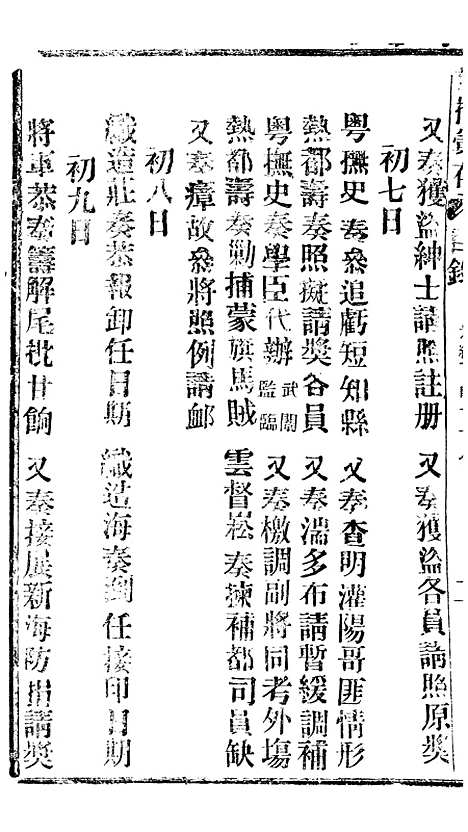 又奏獲盜紳士請照註册　又奏獲盜各員請照原奬
初七日
粤撫史奏叅追虧短知縣　又奏查明灌陽哥匪情形
熱都壽奏照擬請奬各員　又奏湍多布請暫緩調補
粤撫史奏學臣代辦武闈監臨　又奏檄調副將同考外塲
熱都壽奏勦捕蒙旗馬賊　雲督崧奏揀補都司員缺
又奏瘴故叅將照例請䘏
初八日
織造莊奏恭報卸任日期　織造海奏到任接印日期
初九日
將軍恭奏籌解尾批甘餉　又奏接展新海防捐請奬